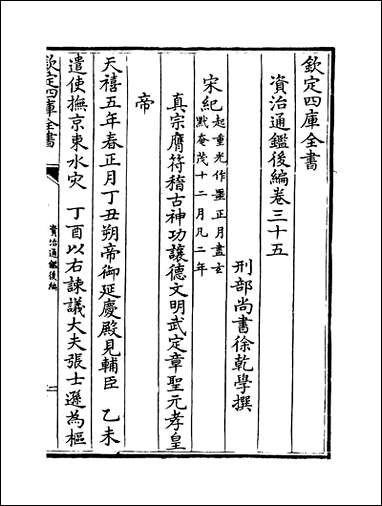 欽定四庫全書
資治通鑑後編卷三十五
刑部尚書徐乾學撰
宋紀
起重光作噩正月盡玄
黓奄茂十二月凡二年
真宗膺符稽古神功讓德文明武定章聖元孝皇
帝
天禧五年春正月丁丑朔帝御延慶殿見輔臣 乙未
遣使撫京東水灾 丁酉以右諫議大夫張士遜為樞
欽定四庫全書
資治通鑑後編